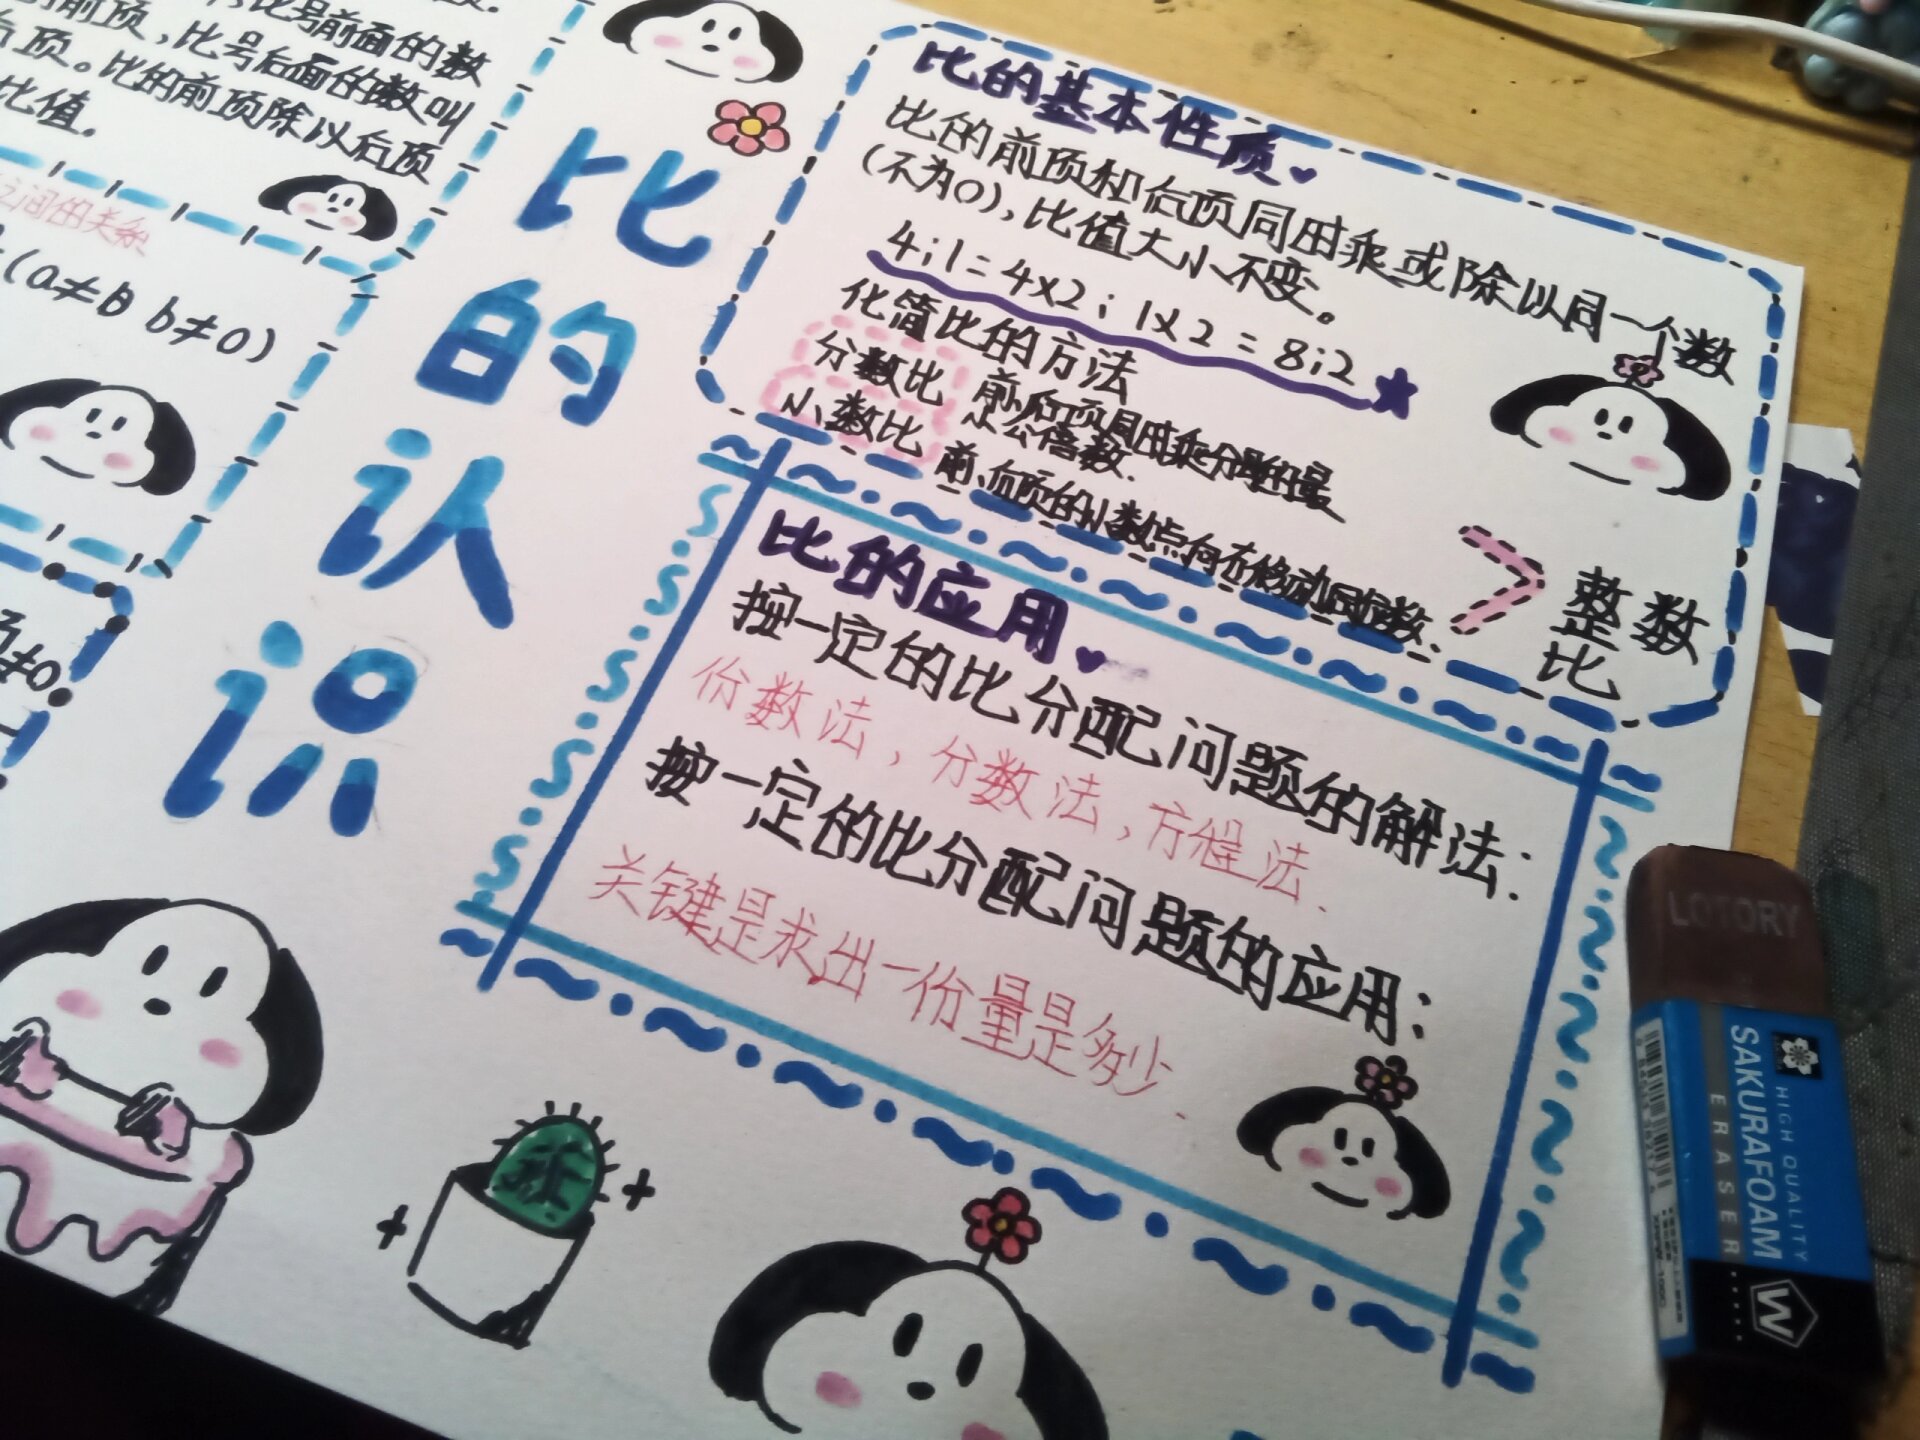 比号前面的数
的前项，比号后面的数叫
后项。比的前项除以后项
比值。
之间的关系
(a≠B b≠0)
≠0
比的认识
比的基本性质
比的前项和后项同时乘或除以同一个数
(不为0),比值大小不变。
4:1=4x2:1x2=8:2
化简比的方法
分数比 前、后项同时乘分母的最
小公倍数.
小数比 前、后项的小数点向右移动同位数.
整数
比
比的应用
按一定的比分配问题的解法:
份数法,分数法,方程法.
按一定的比分配问题的应用:
关键是求出一份量是多少.
LOTORY
HIGH QUALITY
SAKURAFOAM
ERASER
W